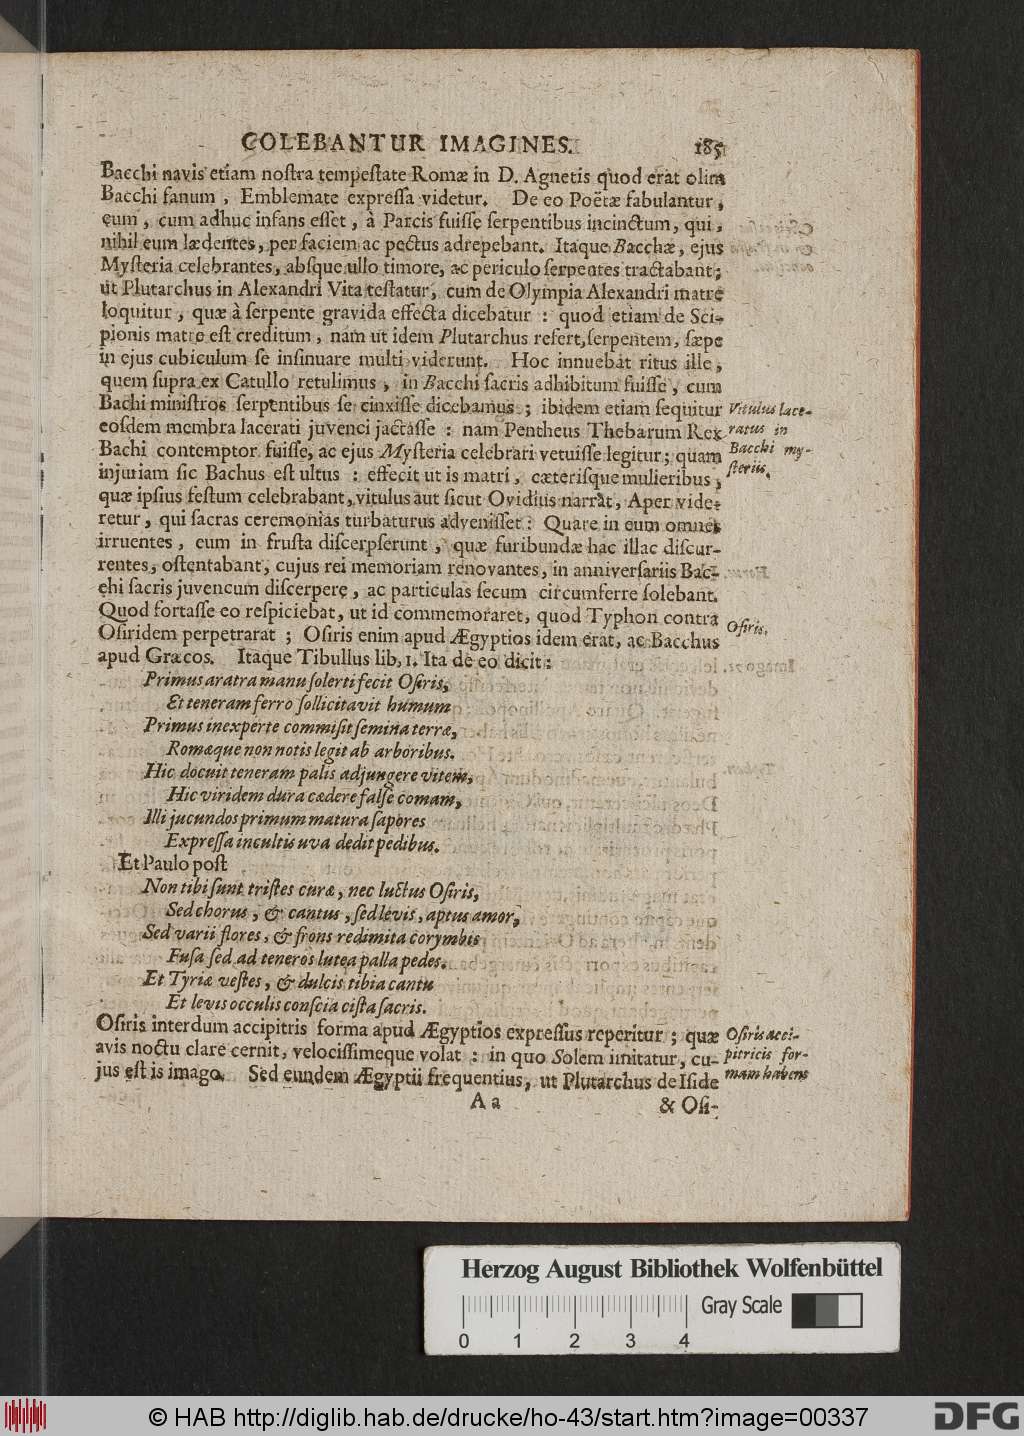 COLEBANTUR IMAGINES. 185
Bacchi navis etiam noſtra tempeſtate Romæ in D. Agnetis quod erat olim
Bacchi fanum, Emblemate expreſſa videtur. De eo Poëtæ fabulantur,
eum, cum adhuc infans eſſet, à Parcis fuiſſe ſerpentibus incinctum, qui,
nihil eum lædentes, per faciem ac pectus adrepebant. Itaque Bacchæ, ejus
Myſteria celebrantes, abſque ullo timore, ac periculo ſerpentes tractabant;
ut Plutarchus in Alexandri Vita teſtatur, cum de Olympia Alexandri matre
loquitur, quæ à ſerpente gravida effecta dicebatur : quod etiam de Sci-
pionis matre eſt creditum, nam ut idem Plutarchus refert, ſerpentem, ſæpe
in ejus cubiculum ſe inſinuare multi viderunt. Hoc innuebat ritus ille,
quem ſupra ex Catullo retulimus, in Bacchi ſacris adhibitum fuiſſe, cum
Bachi miniſtros ſerpentibus ſe cinxiſſe dicebamus; ibidem etiam ſequitur
eoſdem membra lacerati juvenci jactaſſe : nam Pentheus Thebarum Rex
Bachi contemptor fuiſſe, ac ejus Myſteria celebrari vetuiſſe legitur; quam
injuriam ſic Bachus eſt ultus : effecit ut is matri, cæteriſque mulieribus,
quæ ipſius feſtum celebrabant, vitulus aut ſicut Ovidius narrat, Aper vide-
retur, qui ſacras ceremonias turbaturus adveniſſet: Quare in eum omnes
irruentes, eum in fruſta diſcerpſerunt, quæ furibundæ hac illac diſcur-
rentes, oſtentabant, cujus rei memoriam renovantes, in anniverſariis Bac-
chi ſacris juvencum diſcerpere, ac particulas ſecum circumferre ſolebant.
Quod fortaſſe eo reſpiciebat, ut id commemoraret, quod Typhon contra
Oſiridem perpetrarat; Oſiris enim apud Ægyptios idem erat, ac Bacchus
apud Græcos. Itaque Tibullus lib. 1. Ita de eo dicit:
Primus aratra manu ſolerti fecit Oſiris,
Et teneram ferro ſollicitavit humum
Primus inexperte commiſit ſemina terræ,
Romæque non notis legit ab arboribus.
Hic docuit teneram palis adjungere vitem,
Hic viridem dura cædere falſe comam,
Illi jucundos primum matura ſapores
Expreſſa incultis uva dedit pedibus.
Et Paulo poſt
Non tibi ſunt triſtes curæ, nec luctus Oſiris,
Sed chorus, & cantus, ſed levis, aptus amor,
Sed varii flores, & frons redimita corymbis
Fuſa ſed ad teneros lutea palla pedes.
Et Tyriæ veſtes, & dulcis tibia cantu
Et levis occulis conſcia ciſta ſacris.
Oſiris interdum accipitris forma apud Ægyptios expreſſus reperitur; quæ
avis noctu clare cernit, velociſſimeque volat : in quo Solem imitatur, cu-
jus eſt is imago. Sed eundem Ægyptii frequentius, ut Plutarchus de Iſide
Aa & Oſi-
Vitulus lace-
ratus in
Bacchi my-
ſteriis.
Oſiris.
Oſiris acci-
pitricis for-
mam habens
Herzog August Bibliothek Wolfenbüttel
Gray Scale
0 1 2 3 4
© HAB http://diglib.hab.de/drucke/ho-43/start.htm?image=00337
DFG